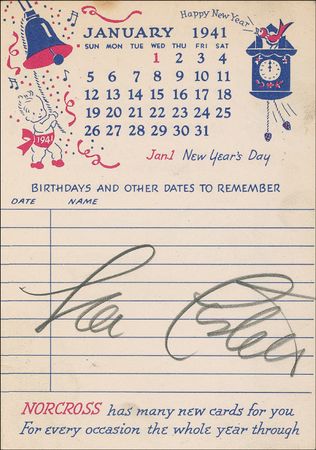 Happy New Year
JANUARY 1941
SUN MON TUE WED THU FRI SAT
1 2 3 4
5 6 7 8 9 10 11
12 13 14 15 16 17 18
19 20 21 22 23 24 25
26 27 28 29 30 31
194
Jan.1 New Year's Day
BIRTHDAYS AND OTHER DATES TO REMEMBER
DATE NAME
NORCROSS has many new cards for you
For every occasion the whole year through